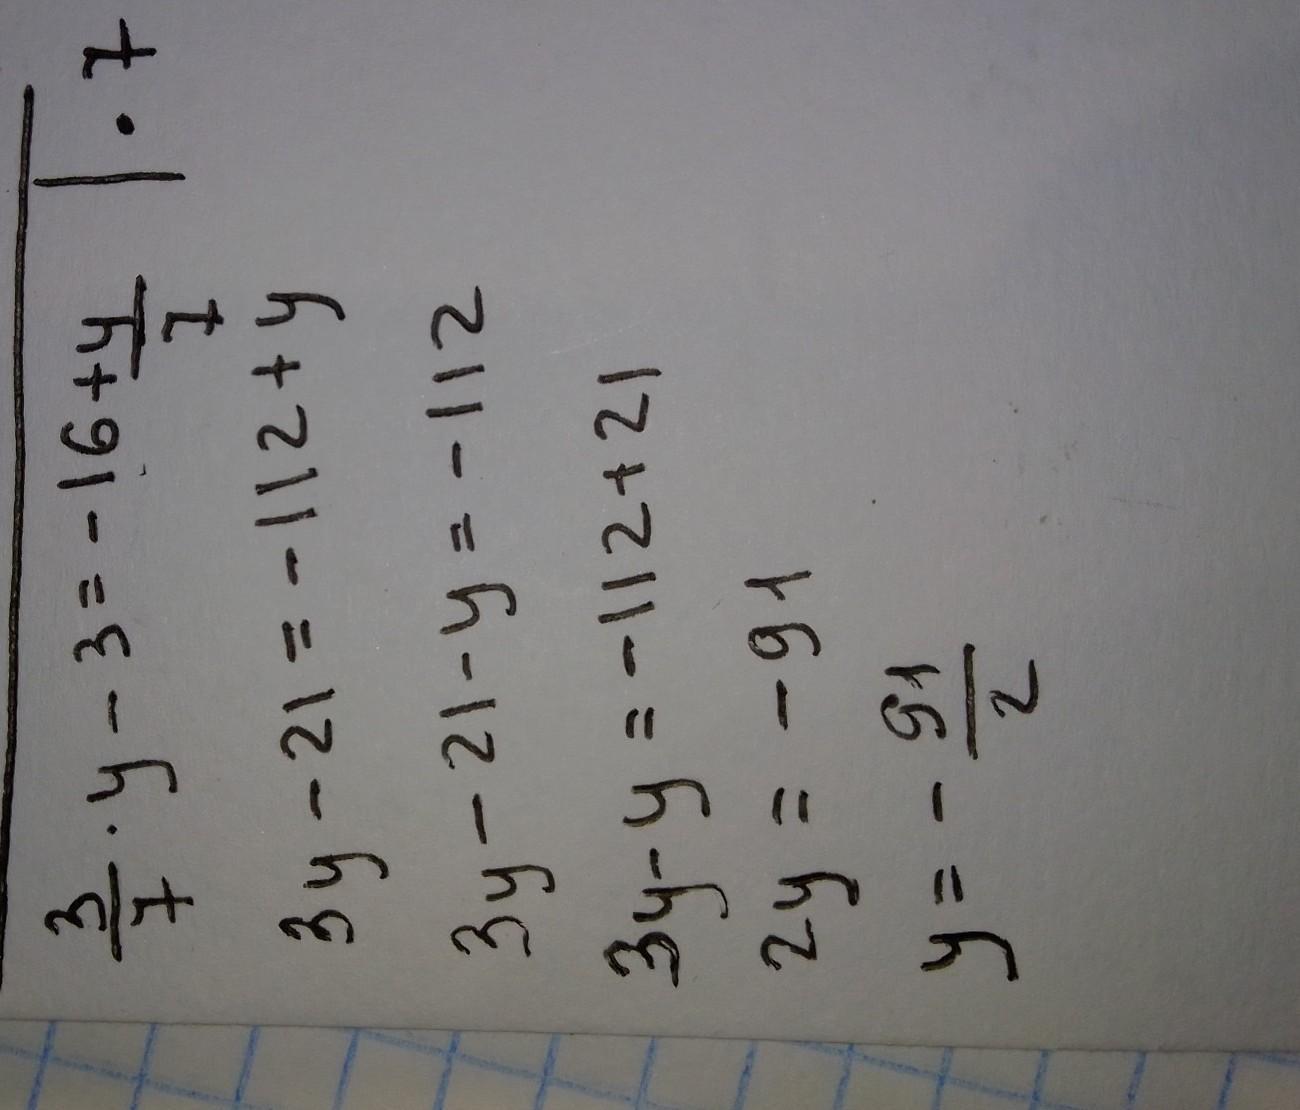 3/7 · y - 3 = -16 + y/7 | · 7
3y - 21 = -112 + y
3y - 21 - y = -112
3y - y = -112 + 21
2y = -91
y = - 91/2